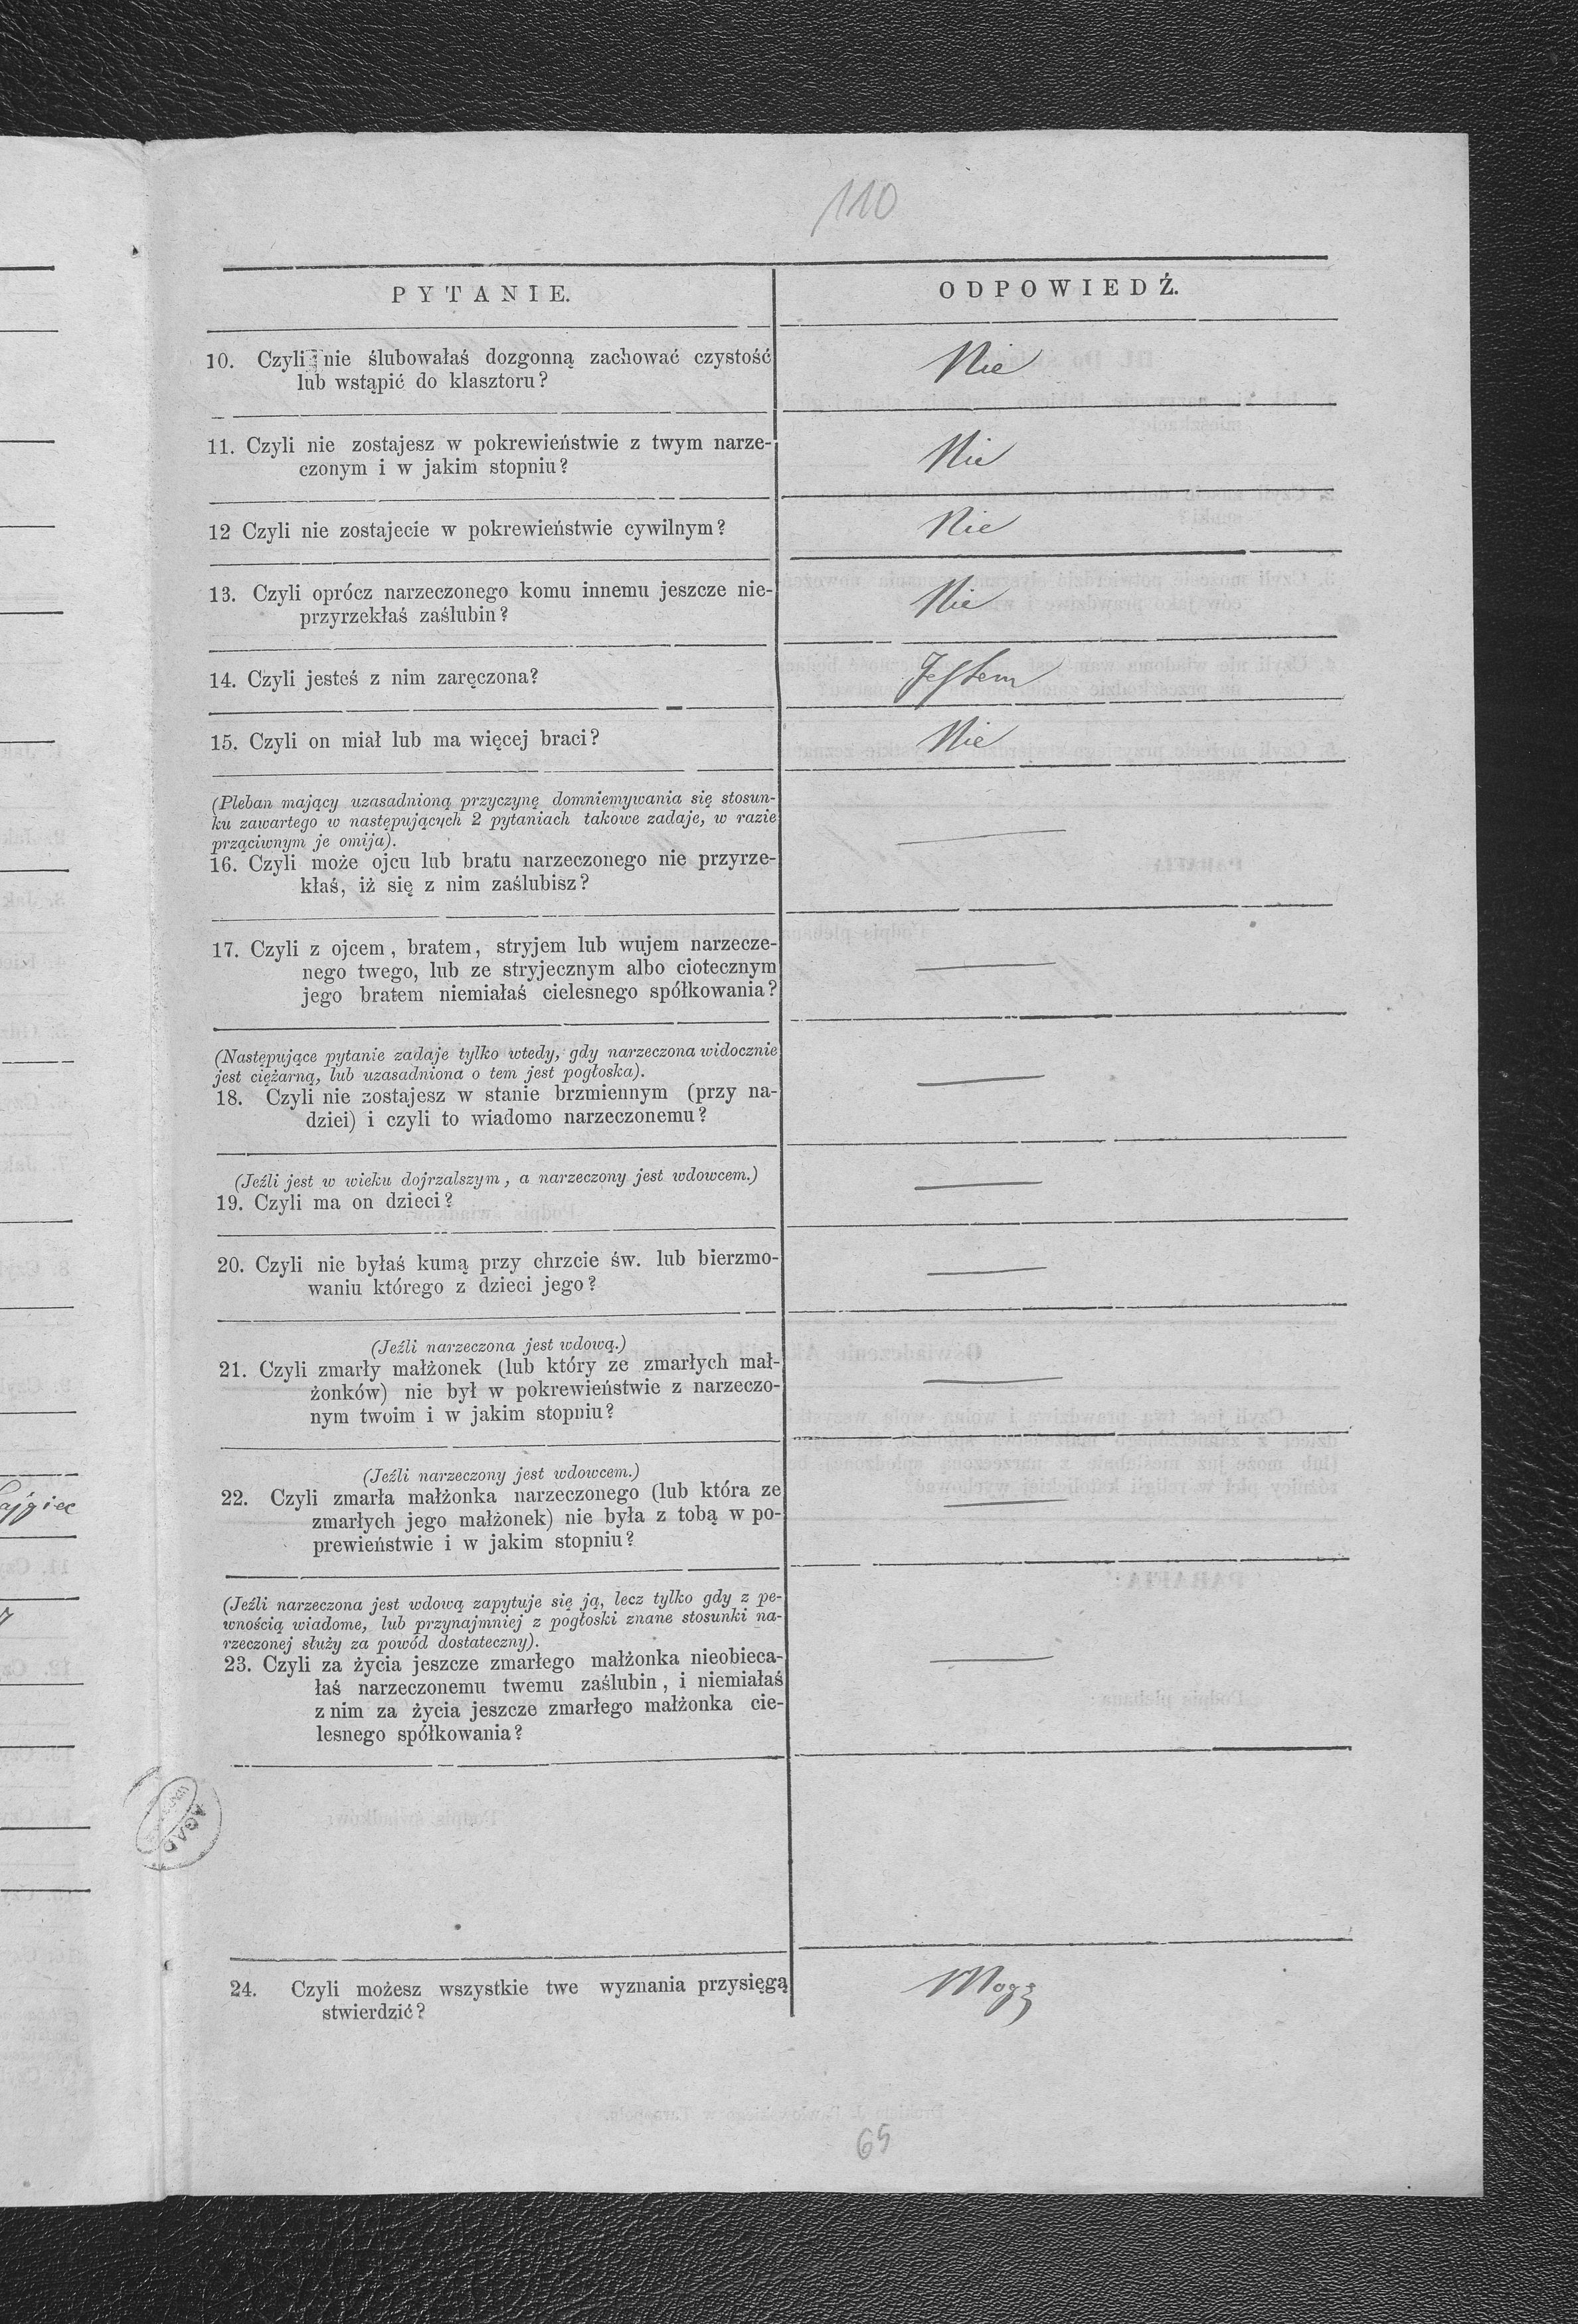 110
PYTANIE.
ODPOWIEDŹ.
10. Czyli nie ślubowałaś dozgonną zachować czystość
lub wstąpić do klasztoru?
Nie
11. Czyli nie zostajesz w pokrewieństwie z twym narze-
czonym i w jakim stopniu?
Nie
12 Czyli nie zostajecie w pokrewieństwie cywilnym?
Nie
13. Czyli oprócz narzeczonego komu innemu jeszcze nie-
przyrzekłaś zaślubin?
Nie
14. Czyli jesteś z nim zaręczona?
Jestem
15. Czyli on miał lub ma więcej braci?
Nie
(Pleban mający uzasadnioną przyczynę domniemywania się stosun-
ku zawartego w następujących 2 pytaniach takowe zadaje, w razie
prząciwnym je omija).
16. Czyli może ojcu lub bratu narzeczonego nie przyrze-
kłaś, iż się z nim zaślubisz?
—
17. Czyli z ojcem, bratem, stryjem lub wujem narzecze-
nego twego, lub ze stryjecznym albo ciotecznym
jego bratem niemiałaś cielesnego spółkowania?
—
(Następujące pytanie zadaje tylko wtedy, gdy narzeczona widocznie
jest ciężarną, lub uzasadniona o tem jest pogłoska).
18. Czyli nie zostajesz w stanie brzmiennym (przy na-
dziei) i czyli to wiadomo narzeczonemu?
—
(Jeźli jest w wieku dojrzalszym, a narzeczony jest wdowcem.)
19. Czyli ma on dzieci?
—
20. Czyli nie byłaś kumą przy chrzcie św. lub bierzmo-
waniu którego z dzieci jego?
—
(Jeźli narzeczona jest wdową.)
21. Czyli zmarły małżonek (lub który ze zmarłych mał-
żonków) nie był w pokrewieństwie z narzeczo-
nym twoim i w jakim stopniu?
—
(Jeźli narzeczony jest wdowcem.)
22. Czyli zmarła małżonka narzeczonego (lub która ze
zmarłych jego małżonek) nie była z tobą w po-
prewieństwie i w jakim stopniu?
—
(Jeźli narzeczona jest wdową zapytuje się ją, lecz tylko gdy z pe-
wnością wiadome, lub przynajmniej z pogłoski znane stosunki na-
rzeczonej służy za powód dostateczny).
23. Czyli za życia jeszcze zmarłego małżonka nieobieca-
łaś narzeczonemu twemu zaślubin, i niemiałaś
z nim za życia jeszcze zmarłego małżonka cie-
lesnego spółkowania?
—
AGAD
24. Czyli możesz wszystkie twe wyznania przysięgą
stwierdzić?
Mogę
65